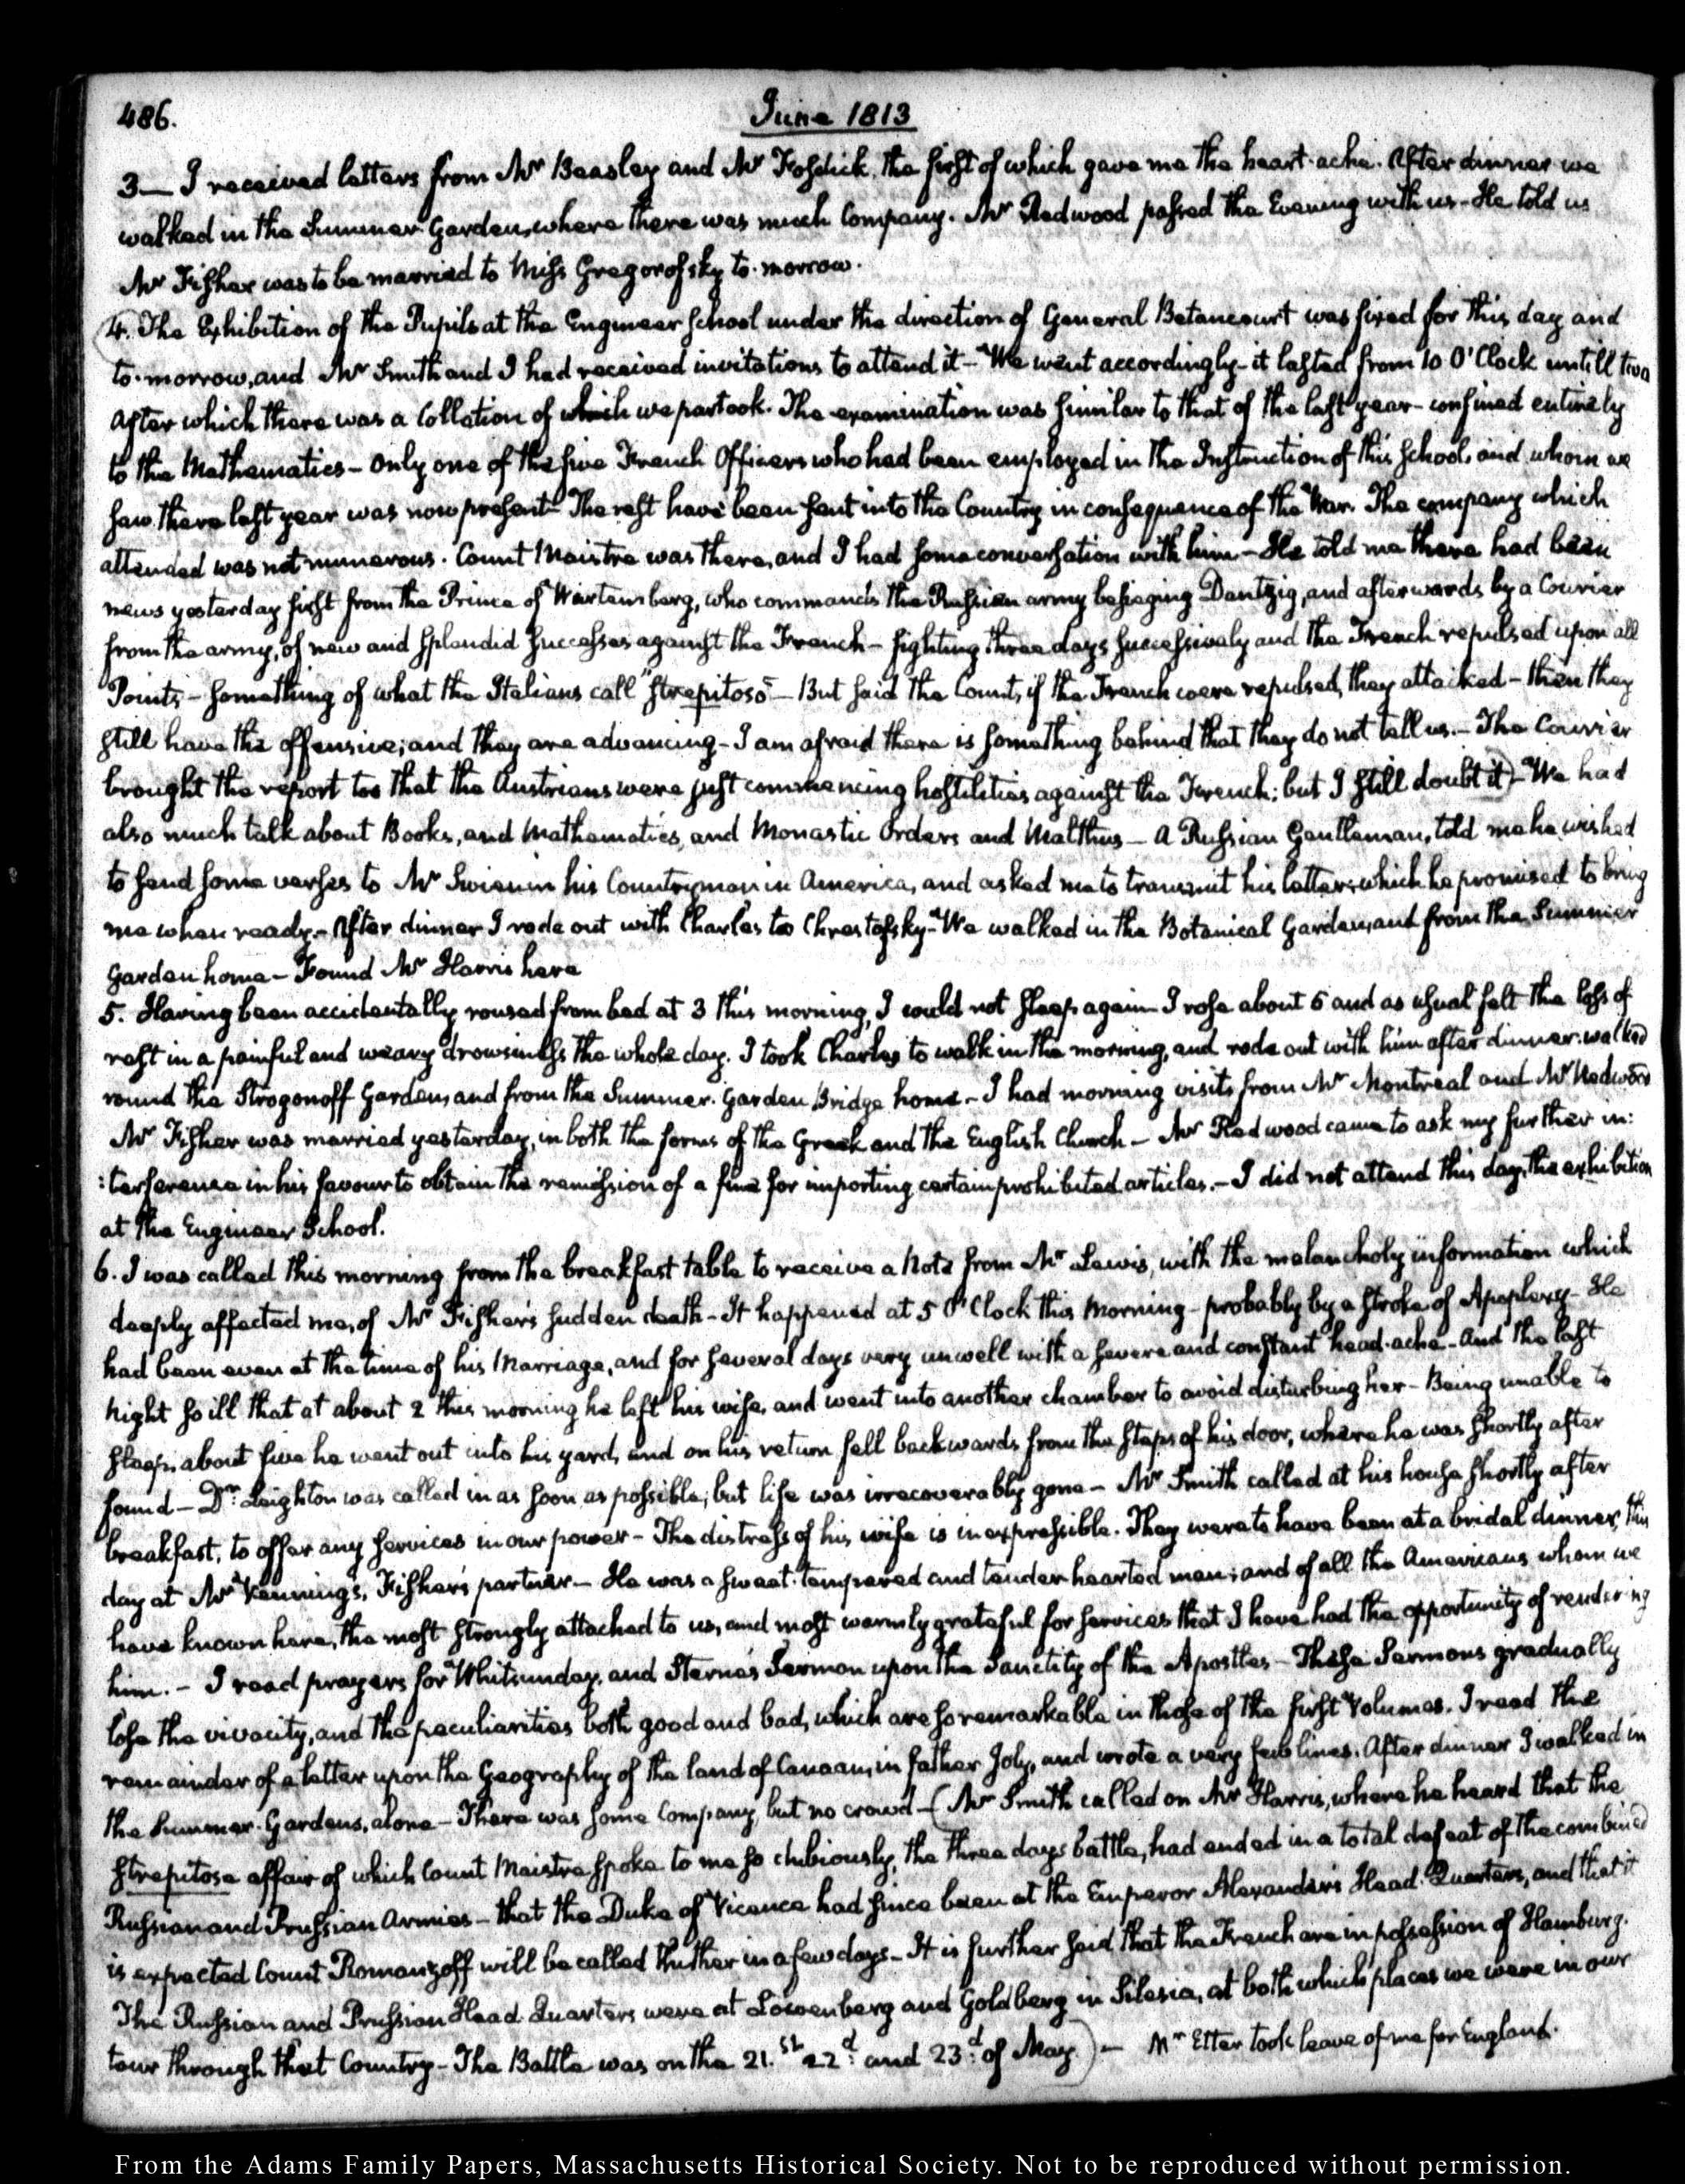 486.
June 1813
3— I received letters from Mr Beasley and Mr Fosdick, the first of which gave me the heart-ache. After dinner we
walked in the Summer Garden, where there was much Company. Mr Redwood passed the Evening with us— He told us
Mr Fisher was to be married to Miss Gregorofsky to-morrow.
4. The Exhibition of the Pupils at the Engineer School under the direction of General Betancourt was fixed for this day and
to-morrow, and Mr Smith and I had received invitations to attend it— We went accordingly— it lasted from 10 O'Clock untill two
After which there was a Collation of which we partook. The examination was similar to that of the last year— confined entirely
to the Mathematics— Only one of the five French Officers who had been employed in the Instruction of this School, and whom we
saw there last year was now present— The rest have been sent into the Country in consequence of the War. The company which
attended was not numerous. Count Maistre was there, and I had some conversation with him— He told me there had been
news yesterday first from the Prince of Würtemberg, who commands the Russian army besieging Dantzig, and afterwards by a Courier
from the army, of new and splendid successes against the French— fighting three days successively and the French repulsed upon all
Points— something of what the Italians call "strepitoso"— But said the Count, if the French were repulsed, they attacked— then they
still have the offensive; and they are advancing— I am afraid there is something behind that they do not tell us.— The Courier
brought the report too that the Austrians were just commencing hostilities against the French; but I still doubt it)— We had
also much talk about Books, and Mathematics, and Monastic Orders and Malthus— A Russian Gentleman, told me he wished
to send some verses to Mr Swienin his Countryman in America, and asked me to transmit his letter, which he promised to bring
me when ready.— After dinner I rode out with Charles to Chrestofsky— We walked in the Botanical Garden, and from the Summer
Garden home— Found Mr Harris here
5. Having been accidentally roused from bed at 3 this morning, I could not sleep again— I rose about 5 and as usual felt the loss of
rest in a painful and weary drowsiness the whole day. I took Charles to walk in the morning, and rode out with him after dinner: walked
round the Strogonoff Gardens, and from the Summer-Garden Bridge home.— I had morning visits from Mr Montreal and Mr Redwood
Mr Fisher was married yesterday, in both the forms of the Greek and the English Church— Mr Redwood came to ask my further in:
:terference in his favour to obtain the remission of a fine for importing certain prohibited articles.— I did not attend this day, the exhibition
at the Engineer School.
6. I was called this morning from the breakfast table to receive a Note from Mr Lewis, with the melancholy information which
deeply affected me, of Mr Fisher's sudden death— It happened at 5 O'Clock this Morning— probably by a stroke of Apoplexy— He
had been even at the time of his Marriage, and for several days very unwell with a severe and constant head-ache— And the last
night so ill that at about 2 this morning he left his wife, and went into another chamber to avoid disturbing her— Being unable to
sleep, about five he went out into his yard, and on his return fell backwards from the steps of his door, where he was shortly after
found— Dr. Leighton was called in as soon as possible; but life was irrecoverably gone— Mr Smith called at his house shortly after
breakfast, to offer any services in our power— The distress of his wife is inexpressible. They were to have been at a bridal dinner, this
day at Mr Venning's, Fisher's partner— He was a sweet-tempered and tender hearted man; and of all the Americans whom we
have known here, the most strongly attached to us, and most warmly grateful for services that I have had the opportunity of rendering
him.— I read prayers for Whitsunday, and Sterne's Sermon upon the Sanctity of the Apostles— These Sermons gradually
lose the vivacity, and the peculiarities both good and bad, which are so remarkable in those of the first Volumes. I read the
remainder of a letter upon the Geography of the land of Canaan, in father Joly, and wrote a very few lines. After dinner I walked in
the Summer-Gardens, alone— There was some Company, but no crowd— (Mr Smith called on Mr Harris, where he heard that the
strepitose affair of which Count Maistre spoke to me so dubiously, the three days battle, had ended in a total defeat of the combined
Russian and Prussian Armies— that the Duke of Vicence had since been at the Emperor Alexander's Head-Quarters, and that it
is expected Count Romanzoff will be called thither in a few days— It is further said that the French are in possession of Hamburg.
The Russian and Prussian Head-Quarters were at Löwenberg and Goldberg in Silesia, at both which places we were in our
tour through that Country— The Battle was on the 21.st 22.d and 23.d of May.)— Mr Etter took leave of me for England.
From the Adams Family Papers, Massachusetts Historical Society. Not to be reproduced without permission.